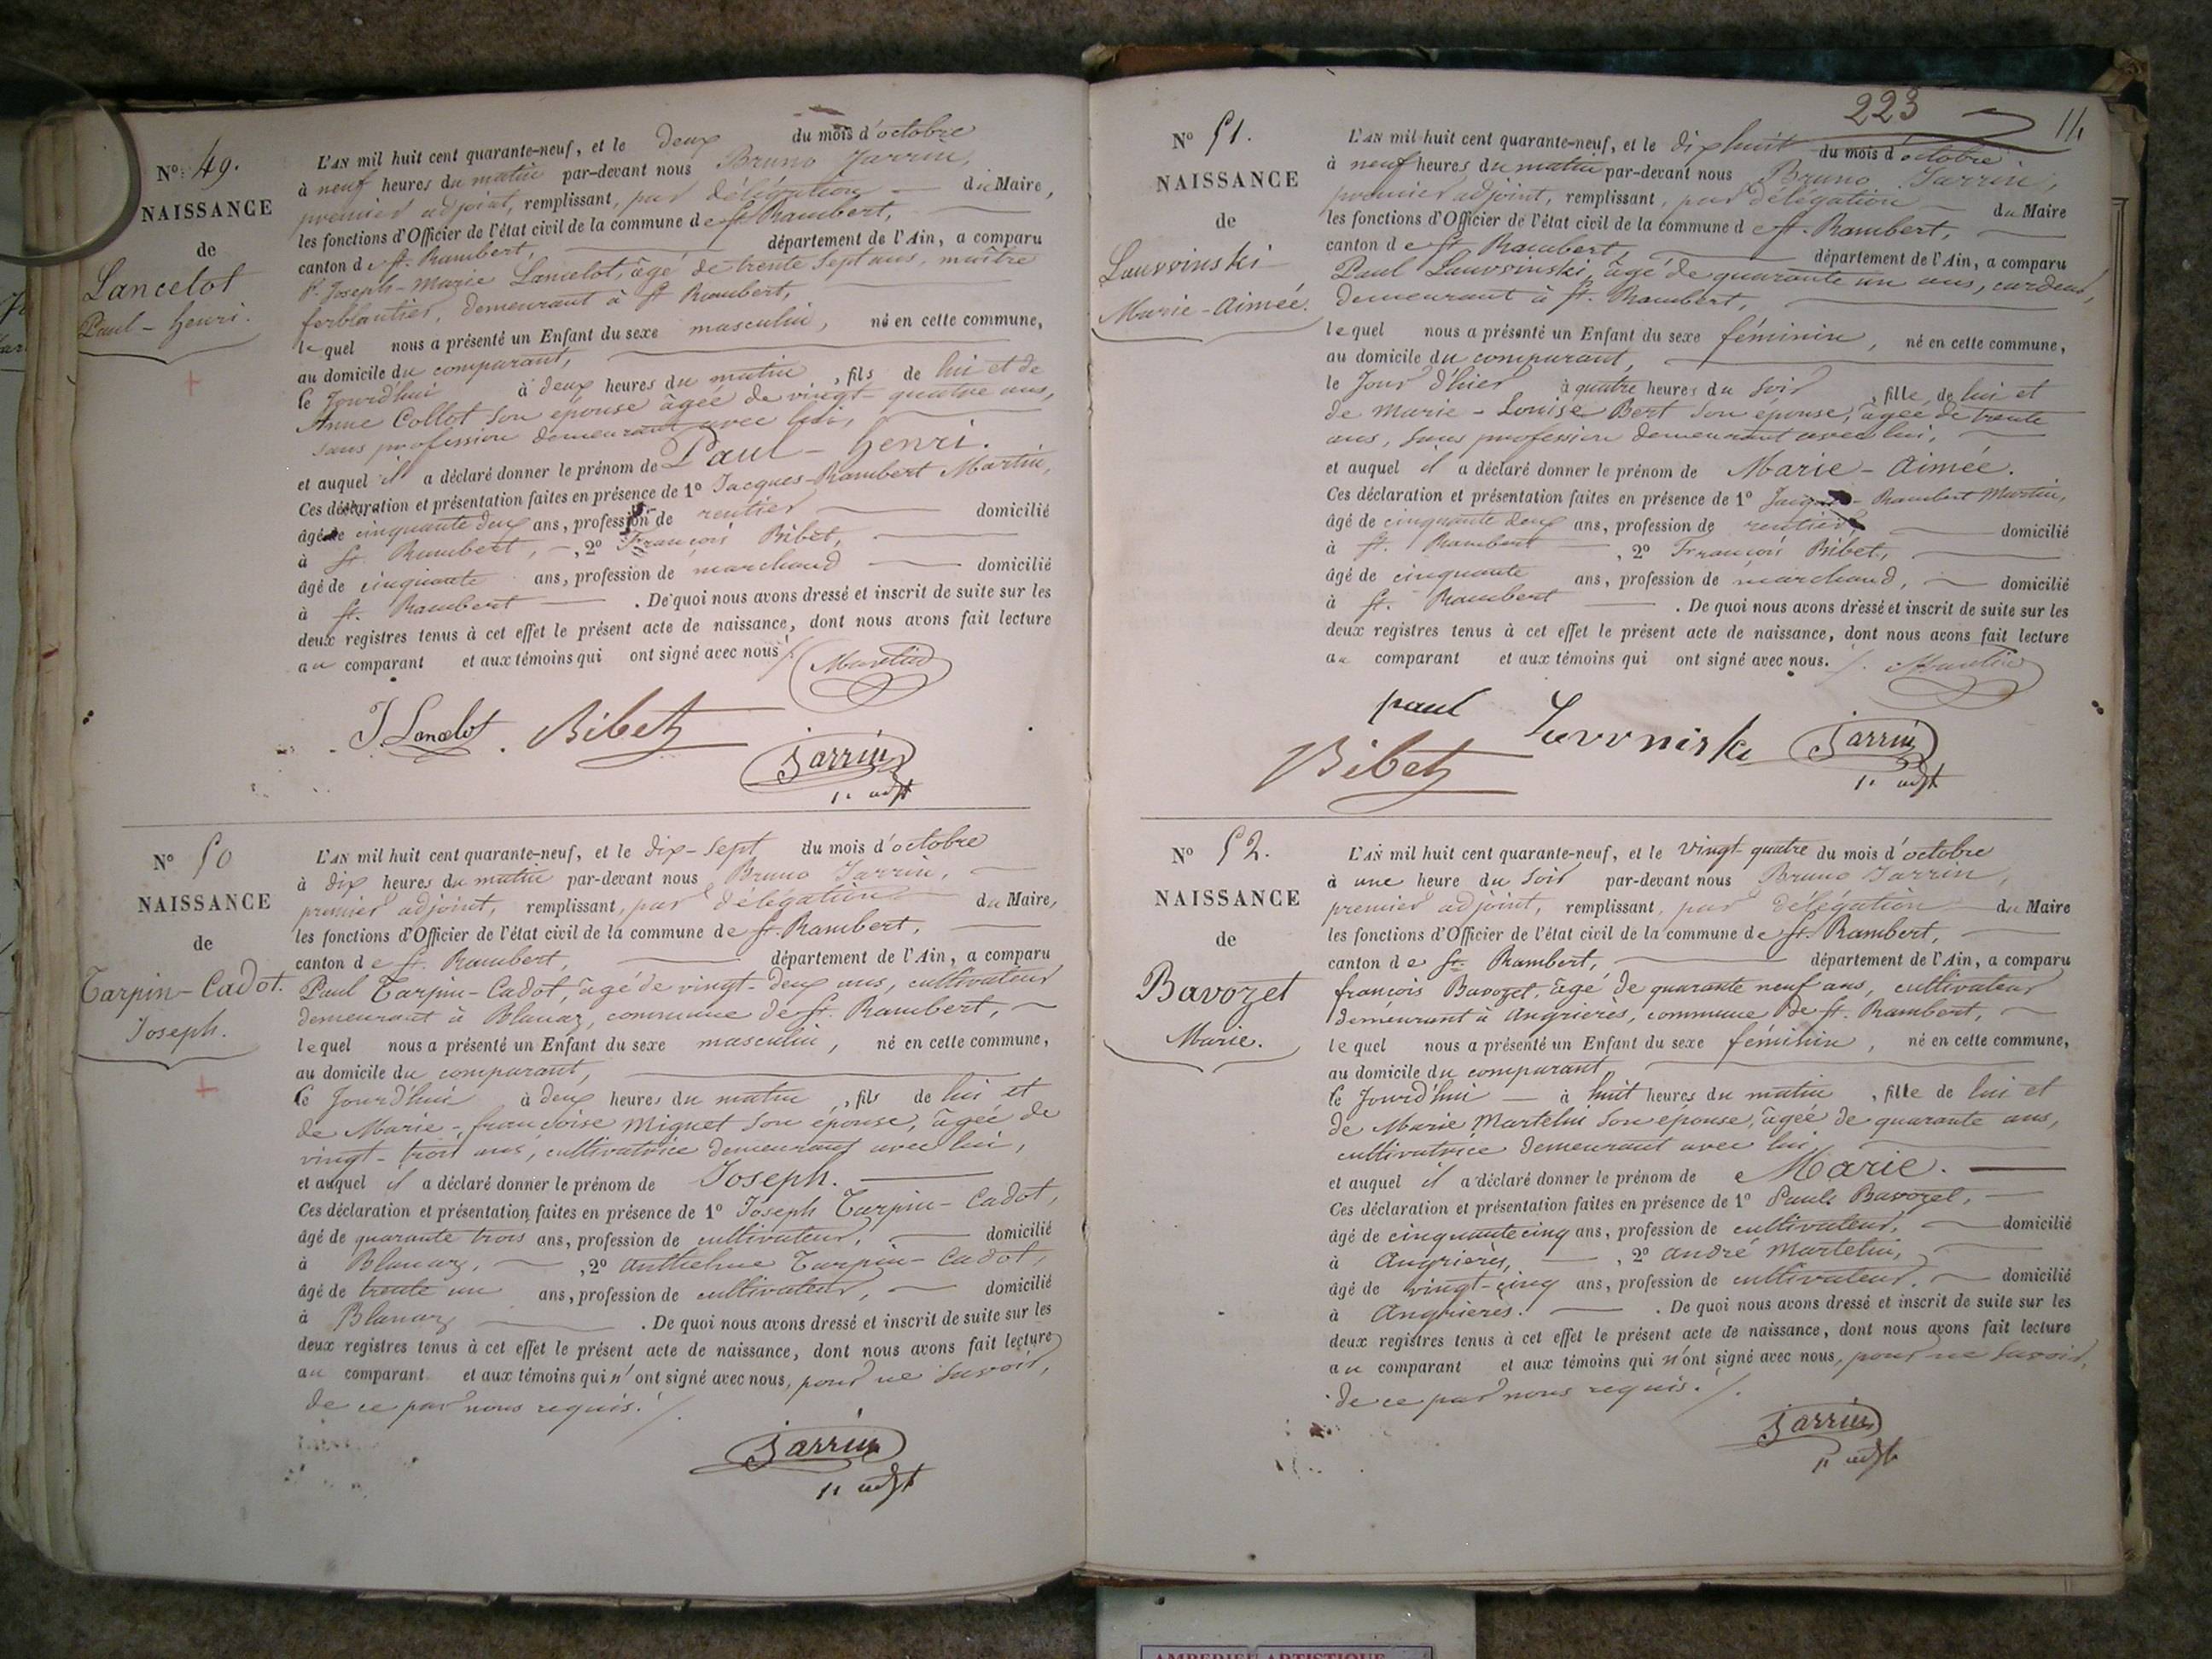 Nº 49.
NAISSANCE
de
Lancelot
Paul - henri.
L'AN mil huit cent quarante-neuf, et le deux du mois d'octobre
à neuf heures du matin par-devant nous Bruno Jarrin,
premier adjoint, remplissant, par délégation du Maire,
les fonctions d'Officier de l'état civil de la commune de St. Rambert,
canton de St. Rambert, département de l'Ain, a comparu
Pre Joseph-Marie Lancelot, âgé de trente sept ans, maître
ferblantier, demeurant à St Rambert,
lequel nous a présenté un Enfant du sexe masculin, né en cette commune,
au domicile du comparant,
le jourd'hui à deux heures du matin, fils de lui et de
Anne Collot son épouse âgée de vingt-quatre ans,
sans profession demeurant avec lui,
et auquel il a déclaré donner le prénom de Paul - henri.
Ces déclaration et présentation faites en présence de 1º Jacques-Rambert Martin,
âgé de cinquante deux ans, profession de rentier domicilié
à St. Rambert, 2º François Bibet,
âgé de cinquante ans, profession de marchand domicilié
à St. Rambert . De quoi nous avons dressé et inscrit de suite sur les
deux registres tenus à cet effet le présent acte de naissance, dont nous avons fait lecture
au comparant et aux témoins qui ont signé avec nous /.
Martin
J. Lancelot. Bibet
Jarrin
1r adjt
Nº 50
NAISSANCE
de
Tarpin-Cadot.
Joseph.
L'AN mil huit cent quarante-neuf, et le dix-sept du mois d'octobre
à dix heures du matin par-devant nous Bruno Jarrin,
premier adjoint, remplissant, par délégation du Maire,
les fonctions d'Officier de l'état civil de la commune de St. Rambert,
canton de St. Rambert, département de l'Ain, a comparu
Paul Tarpin-Cadot, âgé de vingt-deux ans, cultivateur
demeurant à Blanaz, commune de St. Rambert,
lequel nous a présenté un Enfant du sexe masculin, né en cette commune,
au domicile du comparant,
le jourd'hui à deux heures du matin, fils de lui et
de Marie-françoise Miguet son épouse, âgée de
vingt-trois ans, cultivatrice demeurant avec lui,
et auquel il a déclaré donner le prénom de Joseph.
Ces déclaration et présentation faites en présence de 1º Joseph Tarpin-Cadot,
âgé de quarante trois ans, profession de cultivateur, domicilié
à Blanaz, 2º Anthelme Tarpin-Cadot,
âgé de trente un ans, profession de cultivateur, domicilié
à Blanaz . De quoi nous avons dressé et inscrit de suite sur les
deux registres tenus à cet effet le présent acte de naissance, dont nous avons fait lecture
au comparant et aux témoins qui n'ont signé avec nous, pour ne savoir,
de ce par nous requis. /.
Jarrin
1r adjt
223
Nº 51.
NAISSANCE
de
Lauvrinski
Marie-Aimée.
L'AN mil huit cent quarante-neuf, et le dix huit du mois d'octobre
à neuf heures du matin par-devant nous Bruno Jarrin,
premier adjoint, remplissant, par délégation du Maire
les fonctions d'Officier de l'état civil de la commune de St. Rambert,
canton de St. Rambert, département de l'Ain, a comparu
Paul Lauvrinski, âgé de quarante un ans, cardeur,
demeurant à St. Rambert,
lequel nous a présenté un Enfant du sexe féminin, né en cette commune,
au domicile du comparant,
le jour d'hier à quatre heures du soir, fille de lui et
de Marie-Louise Bert son épouse, âgée de trente
ans, sans profession demeurant avec lui,
et auquel il a déclaré donner le prénom de Marie-Aimée.
Ces déclaration et présentation faites en présence de 1º Jacques-Rambert Martin,
âgé de cinquante deux ans, profession de rentier, domicilié
à St. Rambert, 2º François Bibet,
âgé de cinquante ans, profession de marchand, domicilié
à St. Rambert . De quoi nous avons dressé et inscrit de suite sur les
deux registres tenus à cet effet le présent acte de naissance, dont nous avons fait lecture
au comparant et aux témoins qui ont signé avec nous. /.
Martin
paul Luvvniski Jarrin
Bibet 1r adjt
Nº 52.
NAISSANCE
de
Bavozet
Marie.
L'AN mil huit cent quarante-neuf, et le vingt-quatre du mois d'octobre
à une heure du soir par-devant nous Bruno Jarrin,
premier adjoint, remplissant, par délégation du Maire
les fonctions d'Officier de l'état civil de la commune de St. Rambert,
canton de St. Rambert, département de l'Ain, a comparu
françois Bavozet, âgé de quarante neuf ans, cultivateur
demeurant à Angrières, commune de St. Rambert,
lequel nous a présenté un Enfant du sexe féminin, né en cette commune,
au domicile du comparant,
le jourd'hui à huit heures du matin, fille de lui et
de Marie Martelin son épouse, âgée de quarante ans,
cultivatrice demeurant avec lui,
et auquel il a déclaré donner le prénom de Marie.
Ces déclaration et présentation faites en présence de 1º Paul Bavozet,
âgé de cinquante cinq ans, profession de cultivateur, domicilié
à Angrières, 2º André Martelin,
âgé de vingt-cinq ans, profession de cultivateur, domicilié
à Angrières. . De quoi nous avons dressé et inscrit de suite sur les
deux registres tenus à cet effet le présent acte de naissance, dont nous avons fait lecture
au comparant et aux témoins qui n'ont signé avec nous, pour ne savoir,
de ce par nous requis. /.
Jarrin
1r adjt